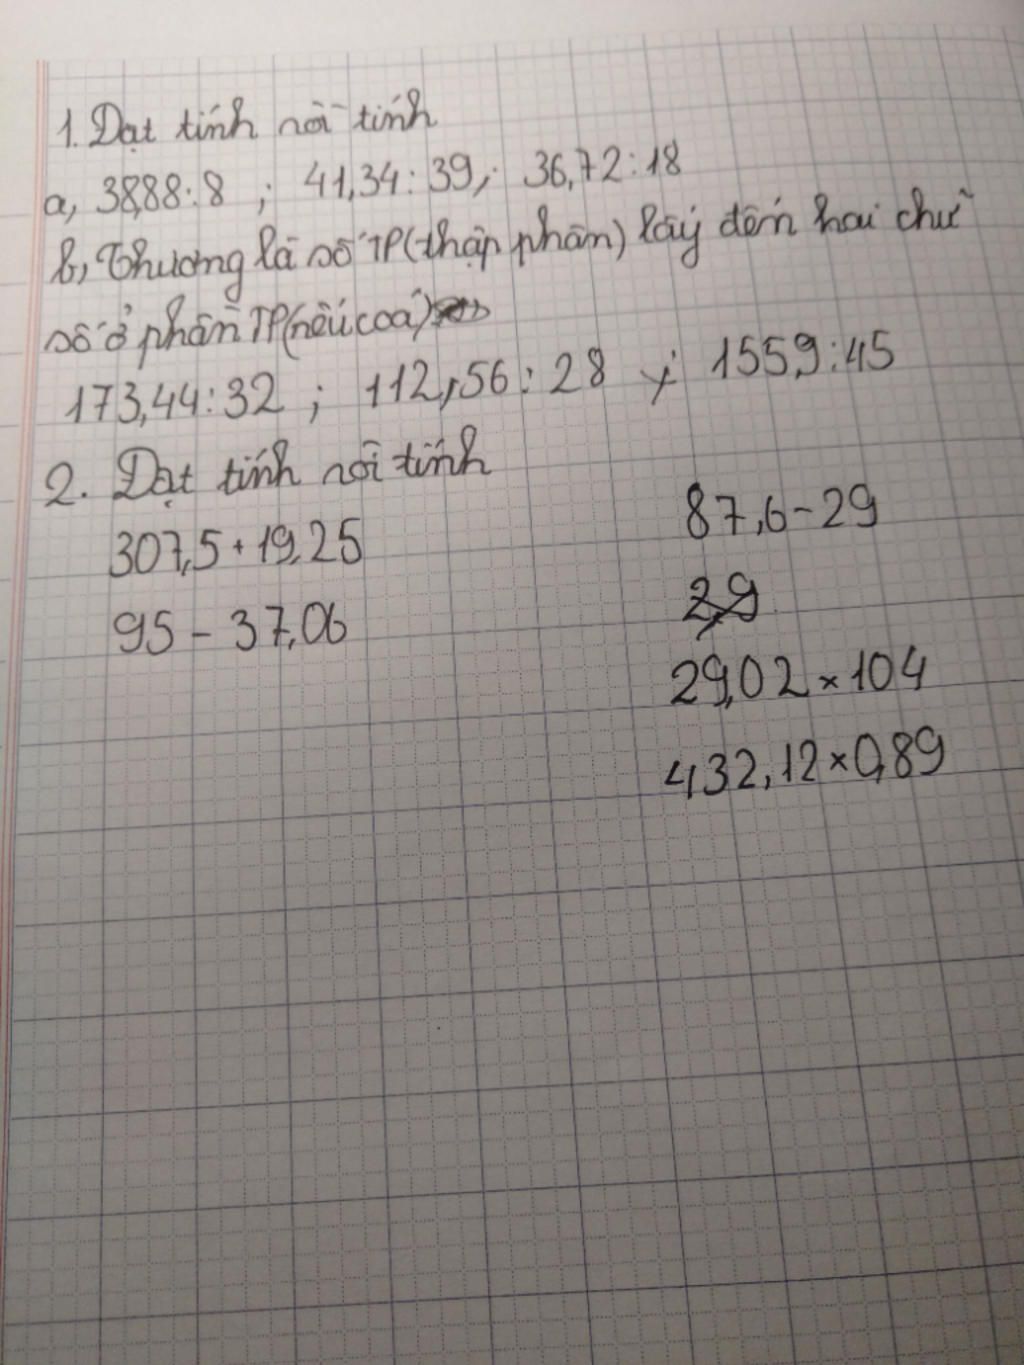 1. Đặt tính rồi tính
a, 38,88:8 ; 41,34:39 ; 36,72:18
b, Thương là số TP (thập phân) lấy đến hai chữ
số ở phần TP (nếu có)
173,44:32 ; 112,56:28 ; 155,9:45
2. Đặt tính rồi tính
307,5+19,25 87,6-29
95-37,06 2,9
29,02×104
432,12×0,89